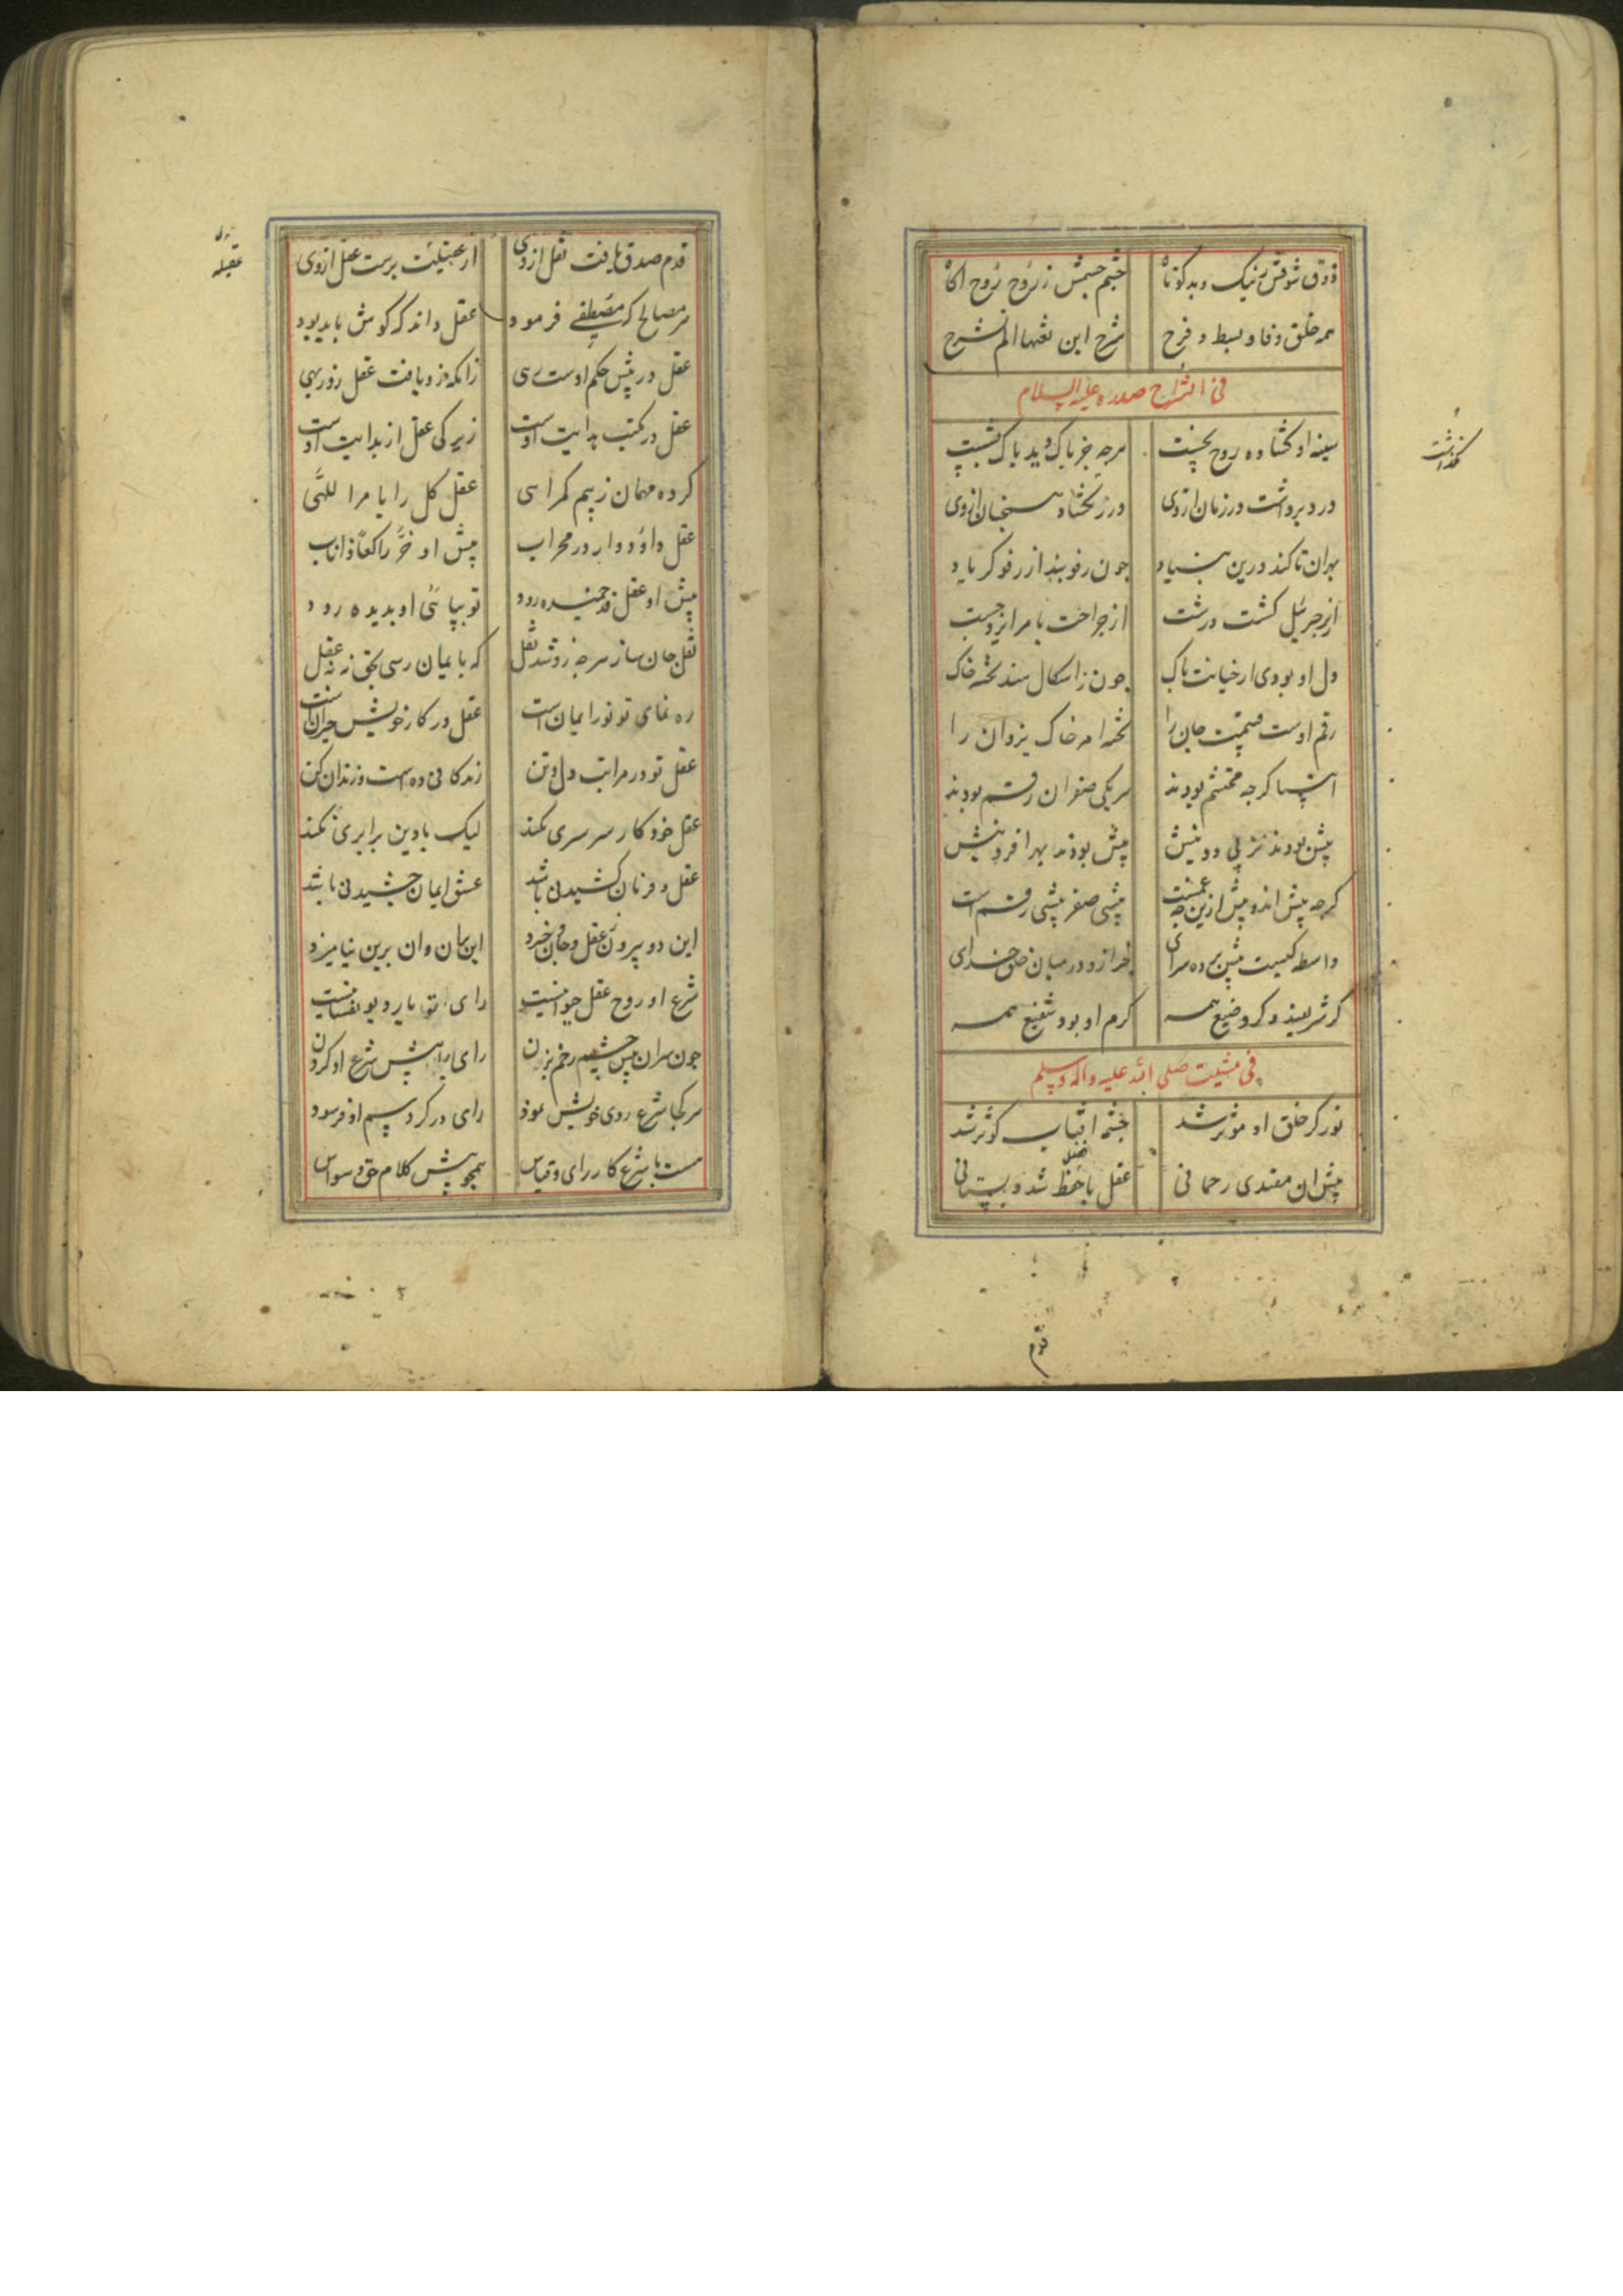 ذوق شوقش ز نیک و بد کوتاه   چشم جسمش ز روح روح اکاه
همه خلق و فا و بسط و فرح   شرح این نغنها الم نشرح
فی انشراح صدره علیه السلام
سینه او کشاده روح نخست   هرچه جز باک دید باک بشست
درد برداشت در زمان از وی   در ز نکشاد همجنان از وی
بهران تا کند درین بنیاد   چون رفو بند از رفو کر یاد
از پر جبرئیل کشت درشت   از جراحت با مر ایزد جست
دل او بودی از خیانت باک   چون ز اشکال هند تخته خاک
رقم اوست قیمت جان را   تخته امر خاک یزدان را
انبیا کرچه محتشم بودند   هر یکی صفر ان رقم بودند
پیش بودند نز پی دو بنیش   پیش بودند بهر افرینش
کرچه پیش اند و پیش ازین چه غمست   پیشی صفر پیشی رقم است
واسطه کیست پیش پرده سرای   جز ازو در میان خلق و خدای
کر شریفند و کر وضیع همه   کرم او بود شفیع همه
فی مشیت صلی الله علیه واله وسلم
نور کز خلق او موثر شد   چشمه افتاب کوثر شد
پیش ان مقتدی رحمانی   عقل با حفظ شد دبستانی
قدم
کذاشت
قدم صدق یافت نقل از وی   از عقیلیت برست عقل از وی
هر مصالح که مصطفی فرمود   عقل داند که کوش باید بود
عقل در پیش حکم اوست رهی   زانکه زو یافت عقل روز بهی
عقل در مکتب هدایت اوست   زیرکی عقل از بدایت اوست
کرده مهمان ز بیم کمراهی   عقل کل را با مر اللهی
عقل داود وار در محراب   پیش او خر راکعا و اناب
پیش او عقل قد خمیده رود   تو بپای او بدیده رود
نقل جان ساز هرچه زو شد نقل   که بایمان رسی بحق نه بعقل
ره نمای تو نور ایمان است   عقل در کار خویش حیران است
عقل تو در مراتب دل و تن   زندکانی ده است و زندان کن
عقل خود کار سرسری نکند   لیک با دین برابری نکند
عقل و فرمان کشیدنی باشد   عشق و ایمان چشیدنی باشد
این دو بیرون ز عقل و جان خیزد   این بان وان برین نیامیزد
شرع او روح عقل حیوانیست   رای تو یار و دیو نفسانیست
چون سران پیش چشم زخم بزن   رای را پیش شرع او کردن
هر کجا شرع روی خویش نمود   رای در کرد و سم او فرسود
هست با شرع کار رای و قیاس   همچو پیش کلام حق وسواس
عقیله